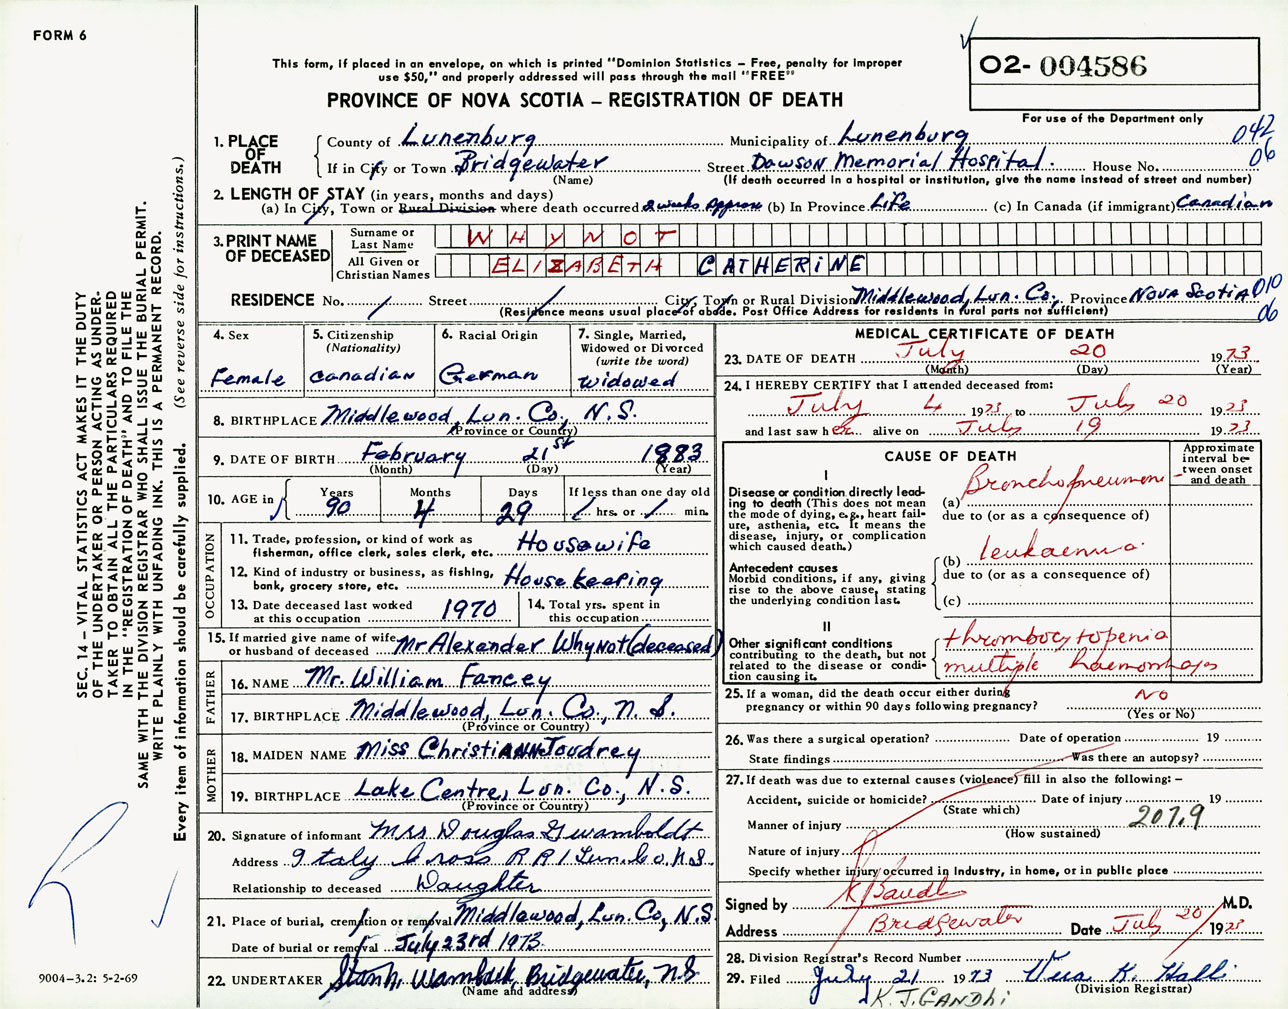 FORM 6
This form, if placed in an envelope, on which is printed "Dominion Statistics – Free, penalty for improper
use $50," and properly addressed will pass through the mail "FREE"
PROVINCE OF NOVA SCOTIA – REGISTRATION OF DEATH
02- 004586
For use of the Department only
042
06
1. PLACE OF DEATH
County of Lunenburg Municipality of Lunenburg
If in City or Town Bridgewater Street Dawson Memorial Hospital. House No.
(Name) (If death occurred in a hospital or institution, give the name instead of street and number)
2. LENGTH OF STAY (in years, months and days)
(a) In City, Town or Rural Division where death occurred 2 weeks approx (b) In Province Life (c) In Canada (if immigrant) Canadian
3. PRINT NAME OF DECEASED
Surname or Last Name WHYNOT
All Given or Christian Names ELIZABETH CATHERINE
RESIDENCE No. / Street / City, Town or Rural Division Middlewood, Lun. Co., Province Nova Scotia 010
06
(Residence means usual place of abode. Post Office Address for residents in rural parts not sufficient)
4. Sex
Female
5. Citizenship
(Nationality)
Canadian
6. Racial Origin
German
7. Single, Married,
Widowed or Divorced
(write the word)
Widowed
8. BIRTHPLACE Middlewood, Lun. Co., N.S.
(Province or Country)
9. DATE OF BIRTH February 21st 1883
(Month) (Day) (Year)
10. AGE in Years 90 Months 4 Days 29 If less than one day old
/ hrs. or / min.
OCCUPATION
11. Trade, profession, or kind of work as
fisherman, office clerk, sales clerk, etc. Housewife
12. Kind of industry or business, as fishing,
bank, grocery store, etc. House Keeping
13. Date deceased last worked
at this occupation 1970
14. Total yrs. spent in
this occupation
15. If married give name of wife
or husband of deceased Mr Alexander WhyNot (deceased)
FATHER
16. NAME Mr. William Fancey
17. BIRTHPLACE Middlewood, Lun. Co., N.S.
(Province or Country)
MOTHER
18. MAIDEN NAME Miss ChristiANN Joudrey
19. BIRTHPLACE Lake Centre, Lun. Co., N.S.
(Province or Country)
20. Signature of informant Mrs Douglas Gwamboldt
Address Italy Cross RR1 Lun. Co. N.S.
Relationship to deceased Daughter
21. Place of burial, cremation or removal Middlewood, Lun. Co, N.S
Date of burial or removal July 23rd 1973
22. UNDERTAKER Bridgewater, NS
(Name and address)
MEDICAL CERTIFICATE OF DEATH
23. DATE OF DEATH July 20 1973
(Month) (Day) (Year)
24. I HEREBY CERTIFY that I attended deceased from:
July 4 1973 to July 20 1973
and last saw her alive on July 19 1973
CAUSE OF DEATH
Approximate
interval be-
tween onset
and death
I
Disease or condition directly lead-
ing to death (This does not mean
the mode of dying, e.g., heart fail-
ure, asthenia, etc. It means the
disease, injury, or complication
which caused death.)
(a) Bronchopneumonia
due to (or as a consequence of)
(b) leukaemia
due to (or as a consequence of)
(c)
Antecedent causes
Morbid conditions, if any, giving
rise to the above cause, stating
the underlying condition last.
II
Other significant conditions
contributing to the death, but not
related to the disease or condi-
tion causing it.
thrombocytopenia
multiple haemorrhages
25. If a woman, did the death occur either during
pregnancy or within 90 days following pregnancy? No
(Yes or No)
26. Was there a surgical operation? Date of operation 19
State findings Was there an autopsy?
27. If death was due to external causes (violence) fill in also the following: –
Accident, suicide or homicide? Date of injury 19
(State which)
207.9
Manner of injury
(How sustained)
Nature of injury
Specify whether injury occurred in industry, in home, or in public place
Signed by M.D.
Address Bridgewater Date July 20 1973
28. Division Registrar's Record Number
29. Filed July 21 1973 Vera K. Halli
(Division Registrar)
K.J. GANDHI
SEC. 14 – VITAL STATISTICS ACT MAKES IT THE DUTY
OF THE UNDERTAKER OR PERSON ACTING AS UNDER-
TAKER TO OBTAIN ALL THE PARTICULARS REQUIRED
IN THE "REGISTRATION OF DEATH" AND TO FILE THE
SAME WITH THE DIVISION REGISTRAR WHO SHALL ISSUE THE BURIAL PERMIT.
WRITE PLAINLY WITH UNFADING INK. THIS IS A PERMANENT RECORD.
Every item of Information should be carefully supplied. (See reverse side for instructions.)
9004–3.2: 5-2-69